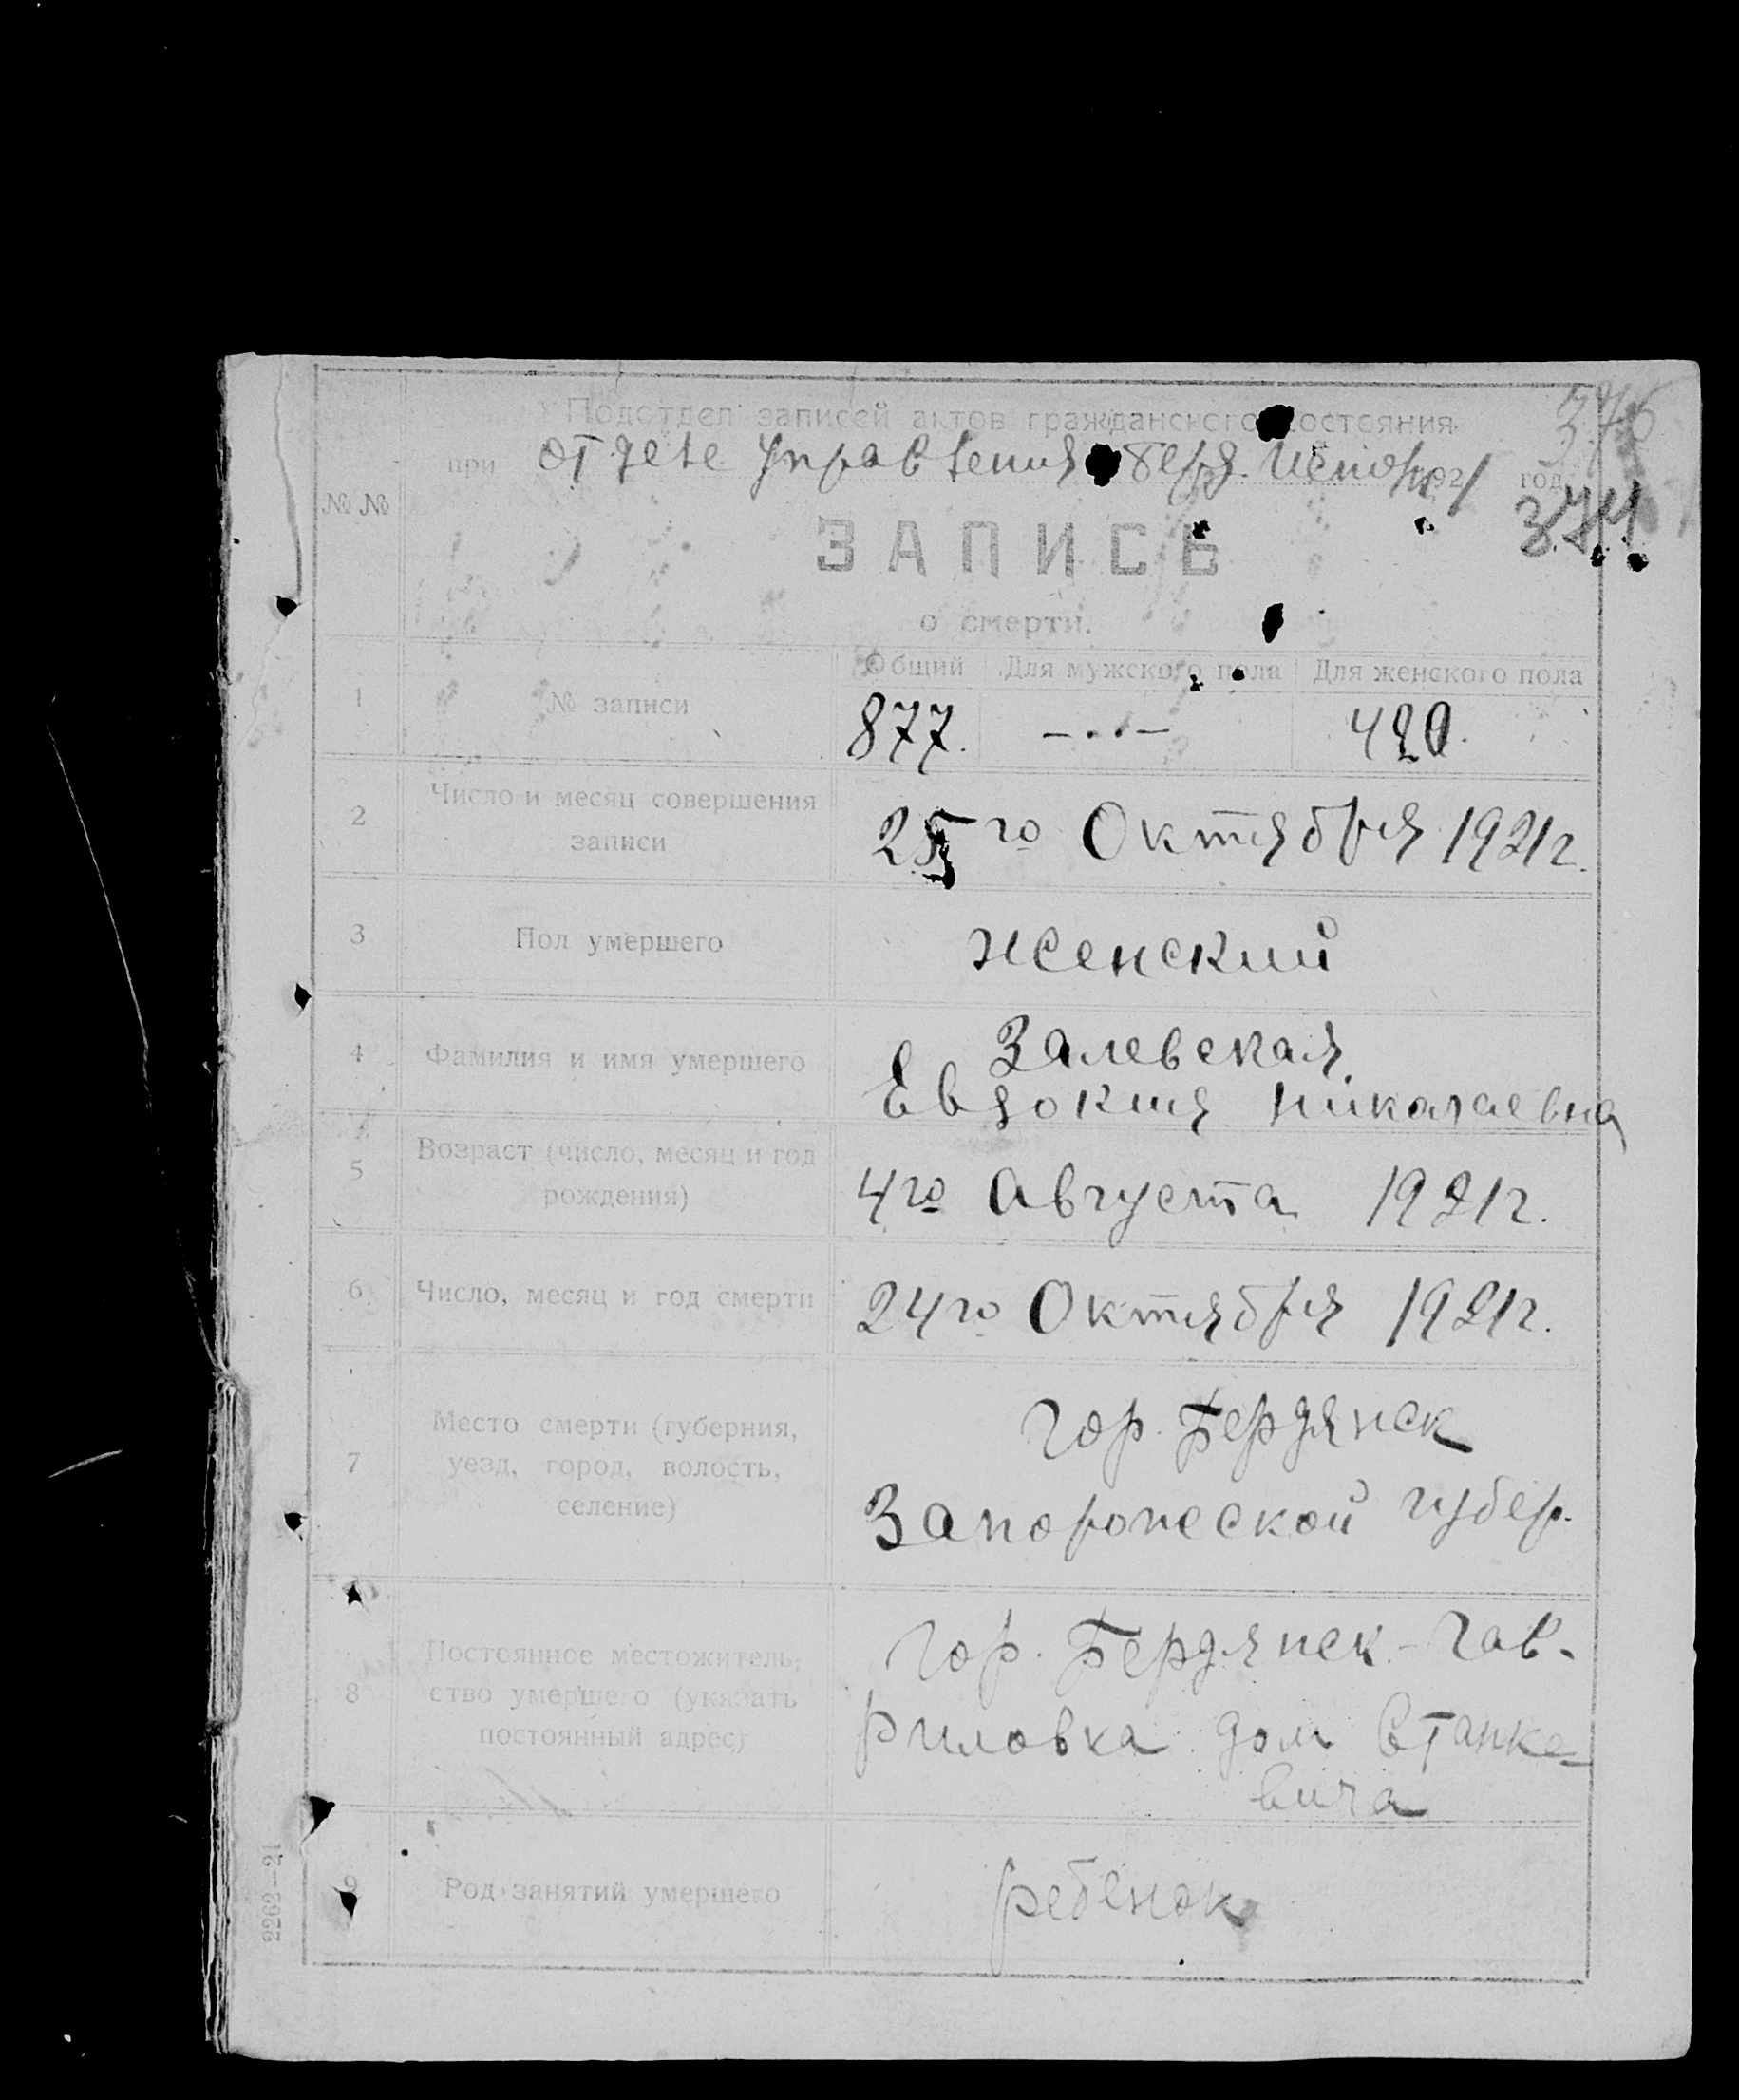 Подотдел записей актов гражданского состояния
при отделе Управления Берд. Исполк. 1921 год
374
№ №
ЗАПИСЬ
о смерти.
Общий Для мужского пола Для женского пола
1 № записи 877. — 420.
2 Число и месяц совершения записи 25го Октября 1921г.
3 Пол умершего женский
4 Фамилия и имя умершего Залевская
Евдокия Николаевна
5 Возраст (число, месяц и год
рождения) 4го Августа 1921г.
6 Число, месяц и год смерти 24го Октября 1921г.
7 Место смерти (губерния, гор. Бердянск
уезд, город, волость,
селение) Запорожской губер.
8 Постоянное местожитель- гор. Бердянск - Гав-
ство умершего (указать
постоянный адрес) риловка дом Станке-
вича
9 Род занятий умершего ребенок
2262—21